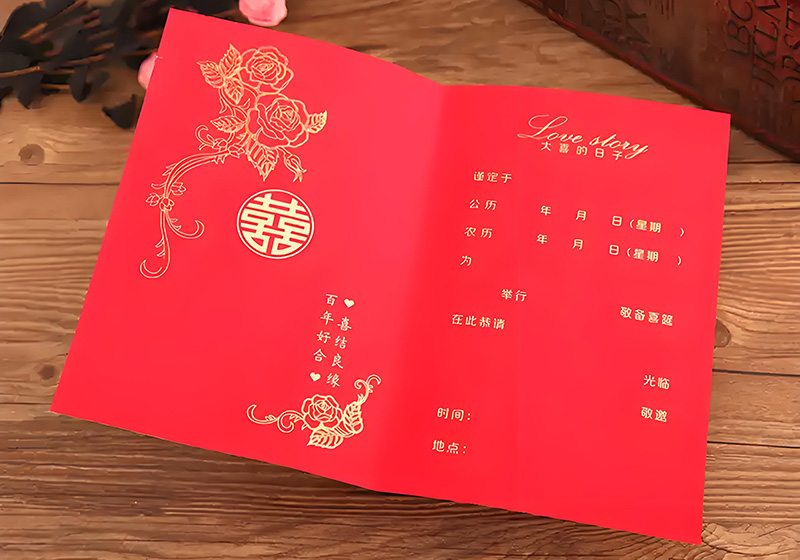 囍
百年好合
喜结良缘
Love story
大喜的日子
谨定于
公历 年 月 日(星期 )
农历 年 月 日(星期 )
为
举行 敬备喜筵
在此恭请
光临
时间： 敬邀
地点：